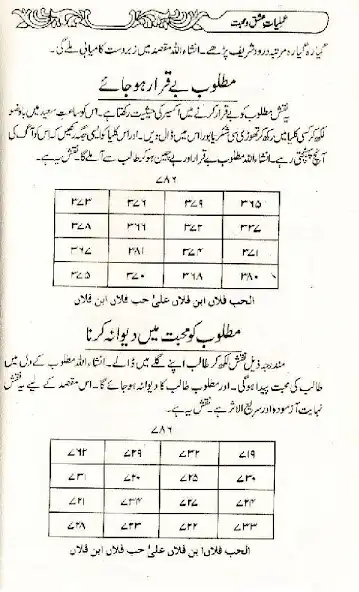 عملیات عشق و محبت
گیارہ گیارہ مرتبہ درود شریف پڑھے۔ انشاء اللہ مقصد میں زبردست کامیابی ملے گی۔
مطلوب بے قرار ہو جائے
یہ نقش مطلوب کو بے قرار کرنے میں اکسیر کی حیثیت رکھتا ہے۔ اس کو ساعت سعید میں باوضو
لکھ کر کسی کلہیا میں رکھ کر تھوڑی سی شکر یا بورا اس میں ڈال دیں۔ اور اس کلہیا کو ایسی جگہ رکھیں کہ اس کو آگ کی
آنچ پہنچتی رہے۔ انشاء اللہ مطلوب بے قرار اور بے چین ہو کر طالب سے آ ملے گا۔ نقش یہ ہے۔
۷۸۶
۳۶۵ ۳۷۹ ۳۷۶ ۳۷۳
۳۷۷ ۳۷۲ ۳۶۶ ۳۷۸
۳۷۱ ۳۷۴ ۳۸۱ ۳۶۷
۳۸۰ ۳۶۸ ۳۷۰ ۳۷۵
الحب فلاں ابن فلاں علیٰ حب فلاں ابن فلاں
مطلوب کو محبت میں دیوانہ کرنا
مندرجہ ذیل نقش لکھ کر طالب اپنے گلے میں ڈالے۔ انشاء اللہ مطلوب کے دل میں
طالب کی محبت پیدا ہوگی۔ اور مطلوب طالب کا دیوانہ ہو جائے گا۔ اس مقصد کے لیے یہ نقش
نہایت آزمودہ اور سریع الاثر ہے۔ نقش یہ ہے۔
۷۸۶
۷۱۹ ۷۳۲ ۷۲۹ ۷۶۲
۷۳۰ ۷۲۵ ۷۲۰ ۷۳۱
۷۲۴ ۷۲۷ ۷۳۴ ۷۲۱
۷۳۳ ۷۲۲ ۷۲۳ ۷۲۸
الحب فلاں ابن فلاں علیٰ حب فلاں ابن فلاں